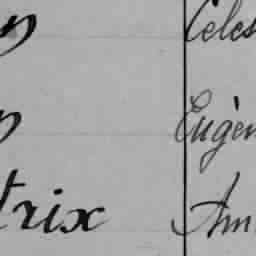 n Celes
n Eugèn
trix Am